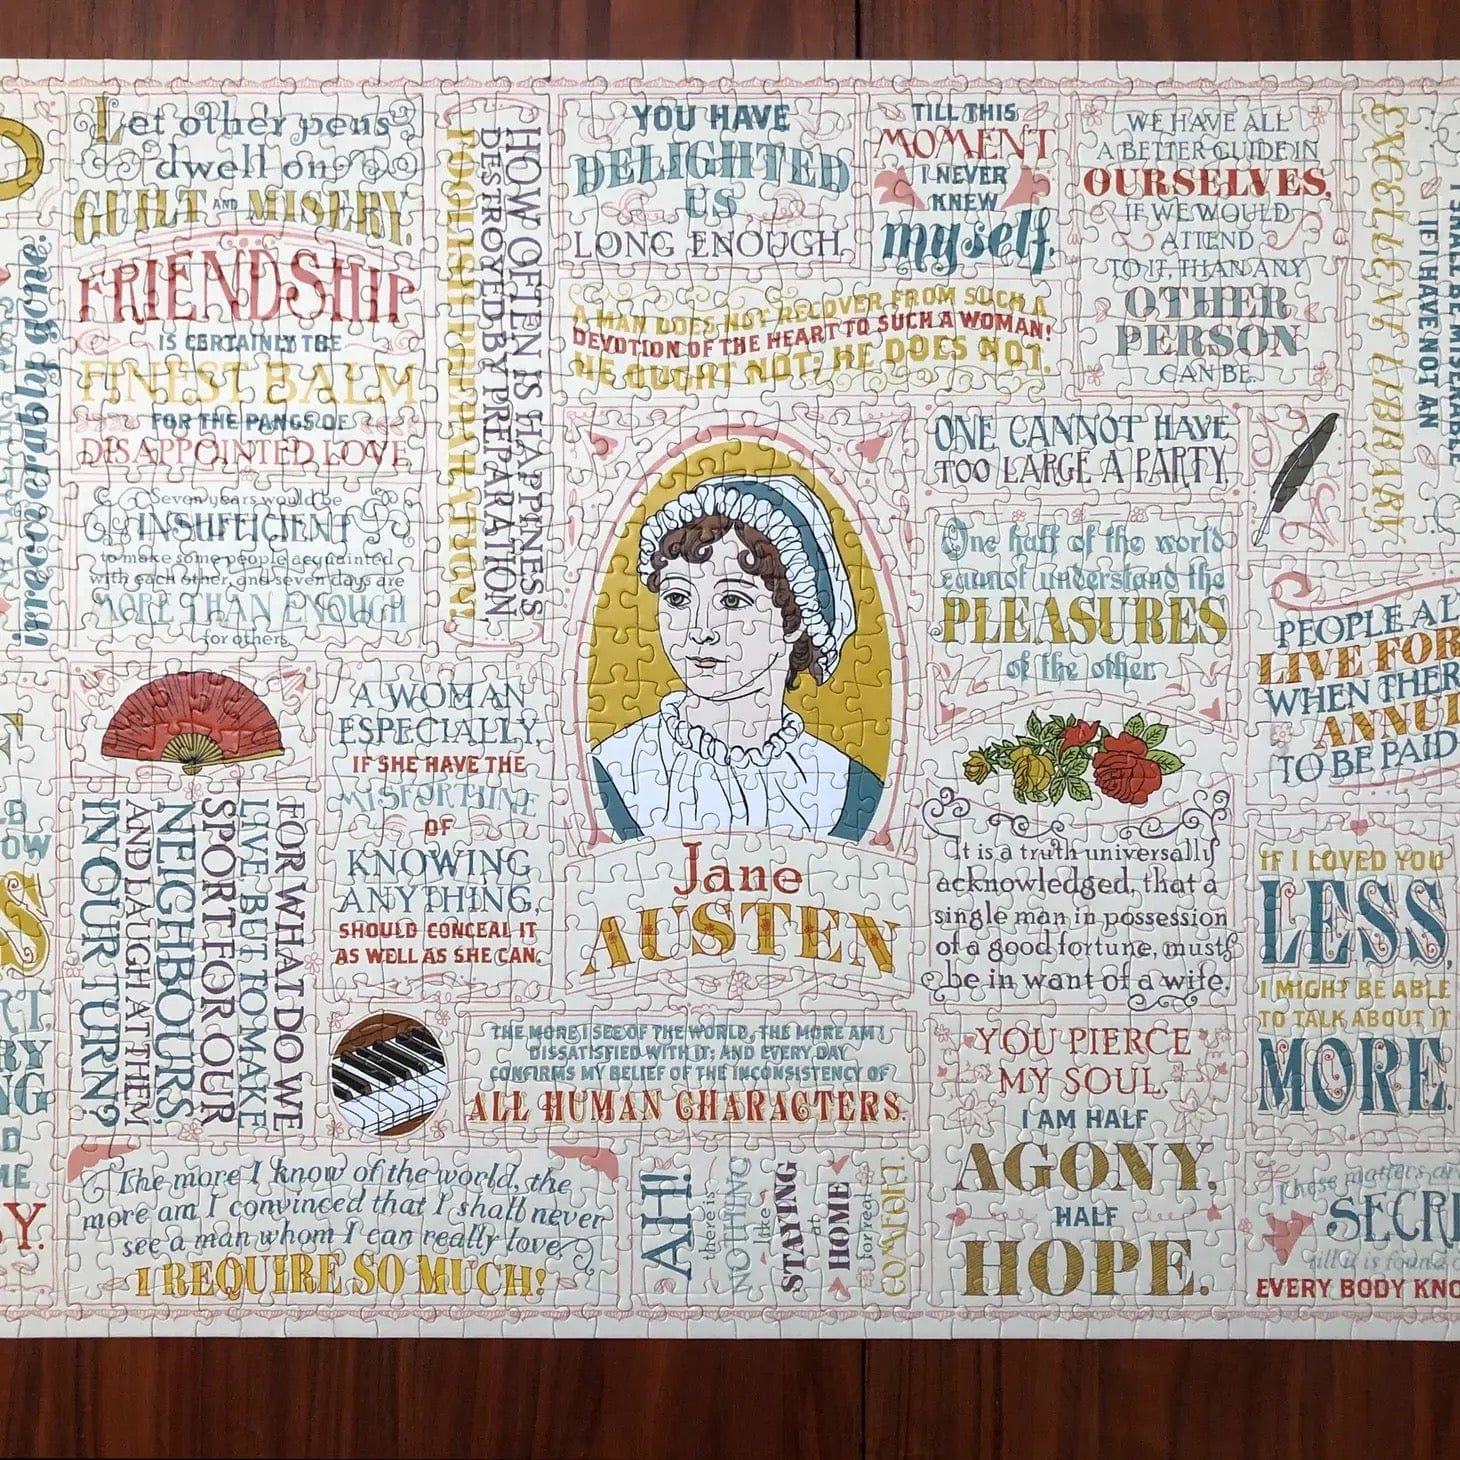 Let other pens
dwell on
GUILT AND MISERY.
FRIENDSHIP
IS CERTAINLY THE
FINEST BALM
FOR THE PANGS OF
DISAPPOINTED LOVE
Seven years would be
INSUFFICIENT
to make some people acquainted
with each other, and seven days are
MORE THAN ENOUGH
for others.
irrecoverably gone.
HOW OFTEN IS HAPPINESS
DESTROYED BY PREPARATION,
FOOLISH PREPARATION!
YOU HAVE
DELIGHTED
US
LONG ENOUGH.
TILL THIS
MOMENT
I NEVER
KNEW
myself.
WE HAVE ALL
A BETTER GUIDE IN
OURSELVES,
IF WE WOULD
ATTEND
TO IT, THAN ANY
OTHER
PERSON
CAN BE.
I SHALL BE MISERABLE
IF I HAVE NOT AN
EXCELLENT LIBRARY
A MAN DOES NOT RECOVER FROM SUCH A
DEVOTION OF THE HEART TO SUCH A WOMAN!
HE OUGHT NOT; HE DOES NOT.
ONE CANNOT HAVE
TOO LARGE A PARTY.
One half of the world
cannot understand the
PLEASURES
of the other.
PEOPLE AL
LIVE FOR
WHEN THER
ANNUI
TO BE PAID
A WOMAN
ESPECIALLY,
IF SHE HAVE THE
MISFORTUNE
OF
KNOWING
ANYTHING,
SHOULD CONCEAL IT
AS WELL AS SHE CAN.
Jane
AUSTEN
It is a truth universally
acknowledged, that a
single man in possession
of a good fortune, must
be in want of a wife.
IF I LOVED YOU
LESS,
I MIGHT BE ABLE
TO TALK ABOUT IT
MORE.
FOR WHAT DO WE
LIVE, BUT TO MAKE
SPORT FOR OUR
NEIGHBOURS,
AND LAUGH AT THEM
IN OUR TURN?
THE MORE I SEE OF THE WORLD, THE MORE AM I
DISSATISFIED WITH IT; AND EVERY DAY
CONFIRMS MY BELIEF OF THE INCONSISTENCY OF
ALL HUMAN CHARACTERS.
YOU PIERCE
MY SOUL.
I AM HALF
AGONY,
HALF
HOPE.
The more I know of the world, the
more am I convinced that I shall never
see a man whom I can really love.
I REQUIRE SO MUCH!
AH!
there is
NOTHING
like
STAYING
at
HOME
for real
COMFORT.
These matters are
SECRE
till it is found
EVERY BODY KNO